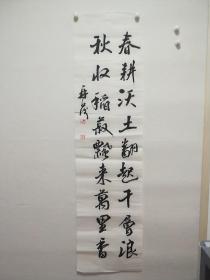 春耕沃土翻起千层浪
秋收稻谷飘来万里香